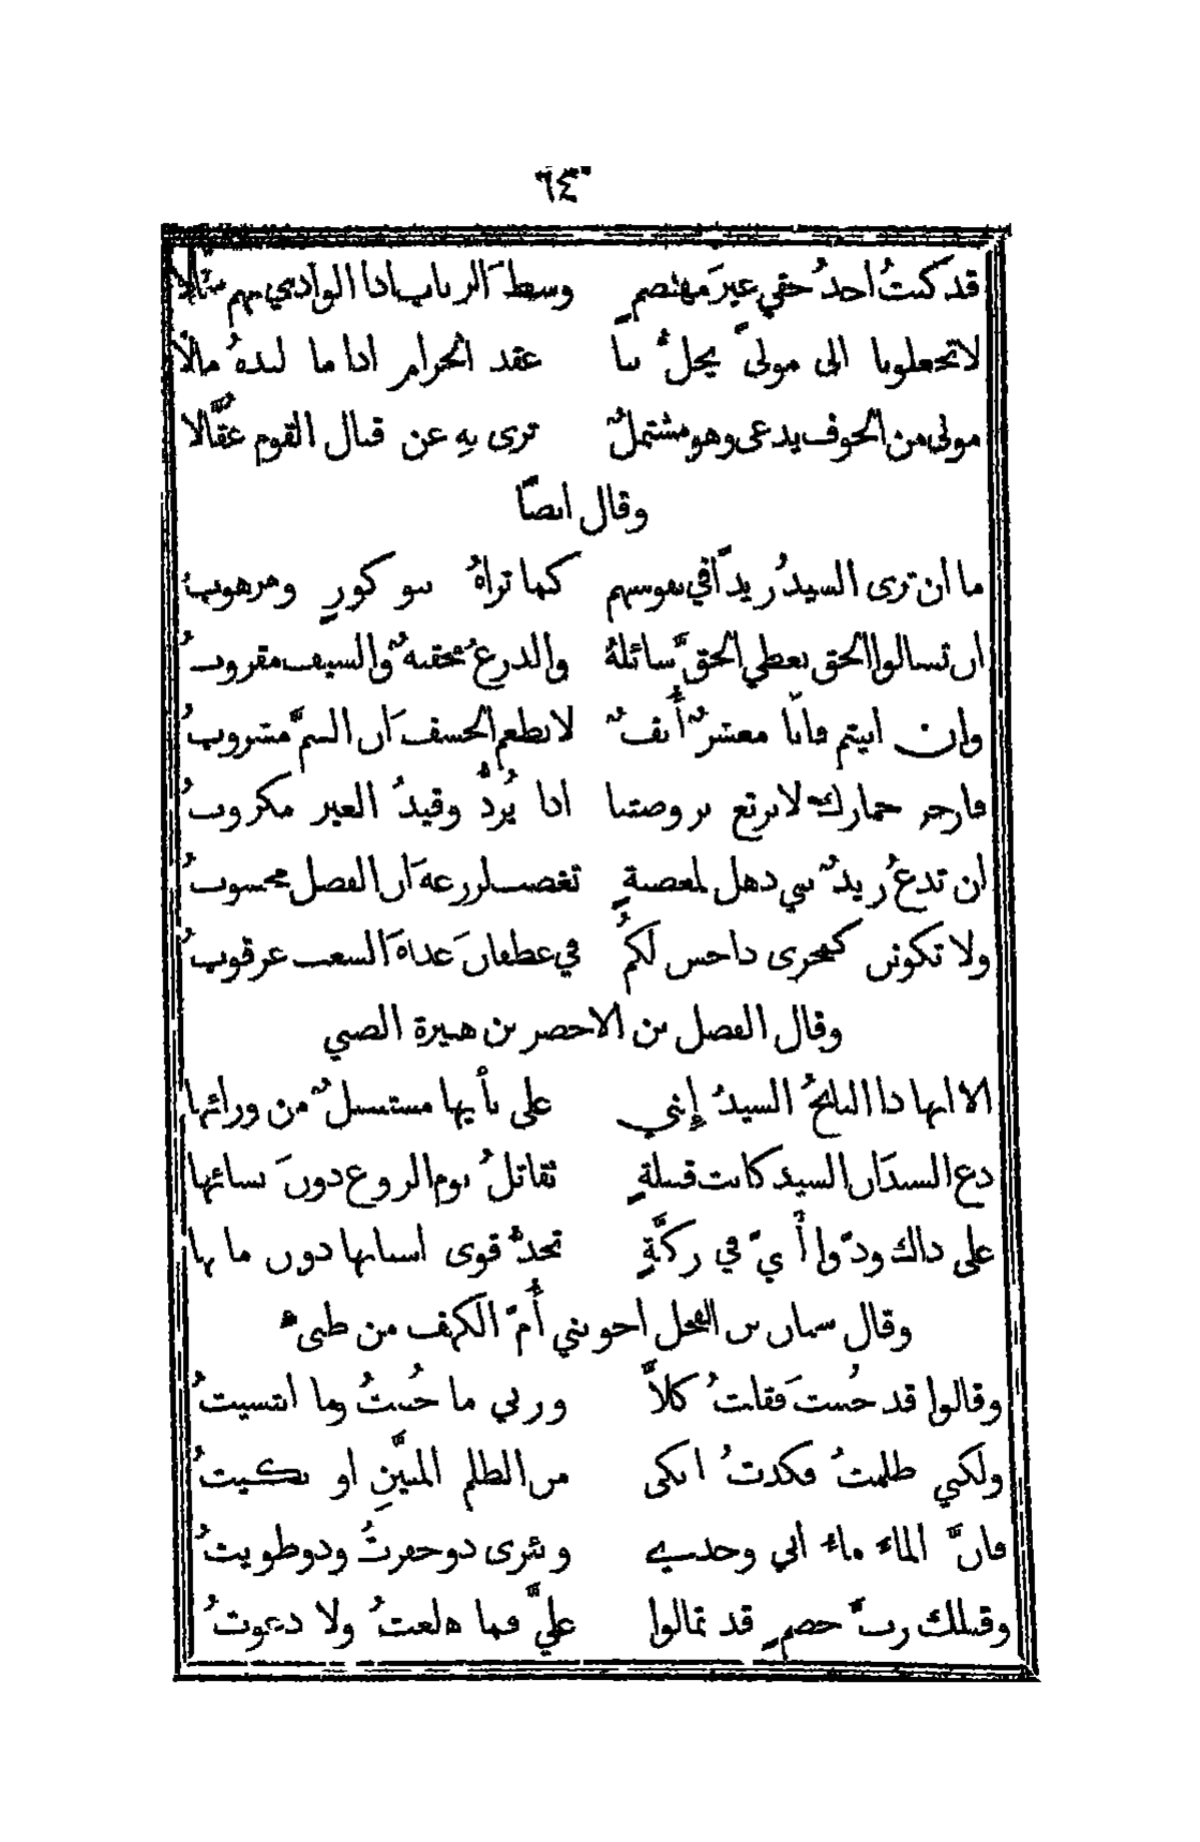 ٦٣
قد كنتُ احدُ حقي غيرَ مهتضمٍ وسطَ الرباب اذا الوادي بهم سالا
لا تجعلونا الى مولىً يحلُّ بنا عقد الحزام اذا ما لبدهُ مالا
مولى من الخوف يدعى وهو مشتملٌ ترى بهِ عن قتال القوم عقَّالا
وقال ايضًا
ما ان ترى السيدُ زيدًا في نفوسهم كما تراهُ بنو كوزٍ ومرهوبُ
ان تسالوا الحق نعطي الحقَّ سائلهُ والدرعُ محقبةٌ والسيف مقروبُ
وان ابيتم فانَّا معشرٌ أُنفٌ لا نطعم الخسفَ ان السمَّ مشروبُ
فازجر حمارك لا يرتع بروضتنا اذا يُردُّ وقيدُ العير مكروبُ
ان تدعُ زيدٌ بني ذهل لمغضبةٍ نغضب لزرعة ان الفضل محسوبُ
ولا تكونن كمجرى داحس لكمُ في غطفان غداة الشعب عرقوبُ
وقال الفضل بن الاخضر بن هبيرة الضبي
الا ايها ذا النابحُ السيدُ إنني على نأيها مستبسلٌ من ورائها
دع السيد ان السيد كانت قبيلةٍ تقاتلُ يوم الروع دونَ نسائها
على ذاك ودّوا أَنيّ في ركيَّةٍ تجذّ قوى اسبابها دون مائها
وقال سنان بن الفحل اخو بني أُمّ الكهف من طيء
وقالوا قد جُننتَ فقلتُ كلاَّ وربي ما جُننتُ وما انتشيتُ
ولكني ظلمتُ فكدتُ ابكى من الظلم المبيَّنِ او بكيتُ
فانَّ الماءَ ماءُ ابي وجدي وبئرى ذو حفرتُ وذو طويتُ
وقبلك ربَّ خصمٍ قد تمالوا عليَّ فما هلعتُ ولا دعوتُ